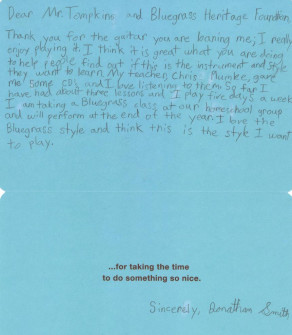 Dear Mr. Tompkins and Bluegrass Heritage Foundation,
Thank you for the guitar you are loaning me; I really
enjoy playing it. I think it is great what you are doing
to help people find out if this is the instrument and style
they want to learn. My teacher, Chris, gave
me some CDs and I love listening to them. So far I
have had about three lessons and I play five days a week.
I am taking a Bluegrass class at our homeschool group
and will perform at the end of the year. I love the
Bluegrass style and think this is the style I want
to play.
...for taking the time
to do something so nice.
Sincerely, Jonathan Smith